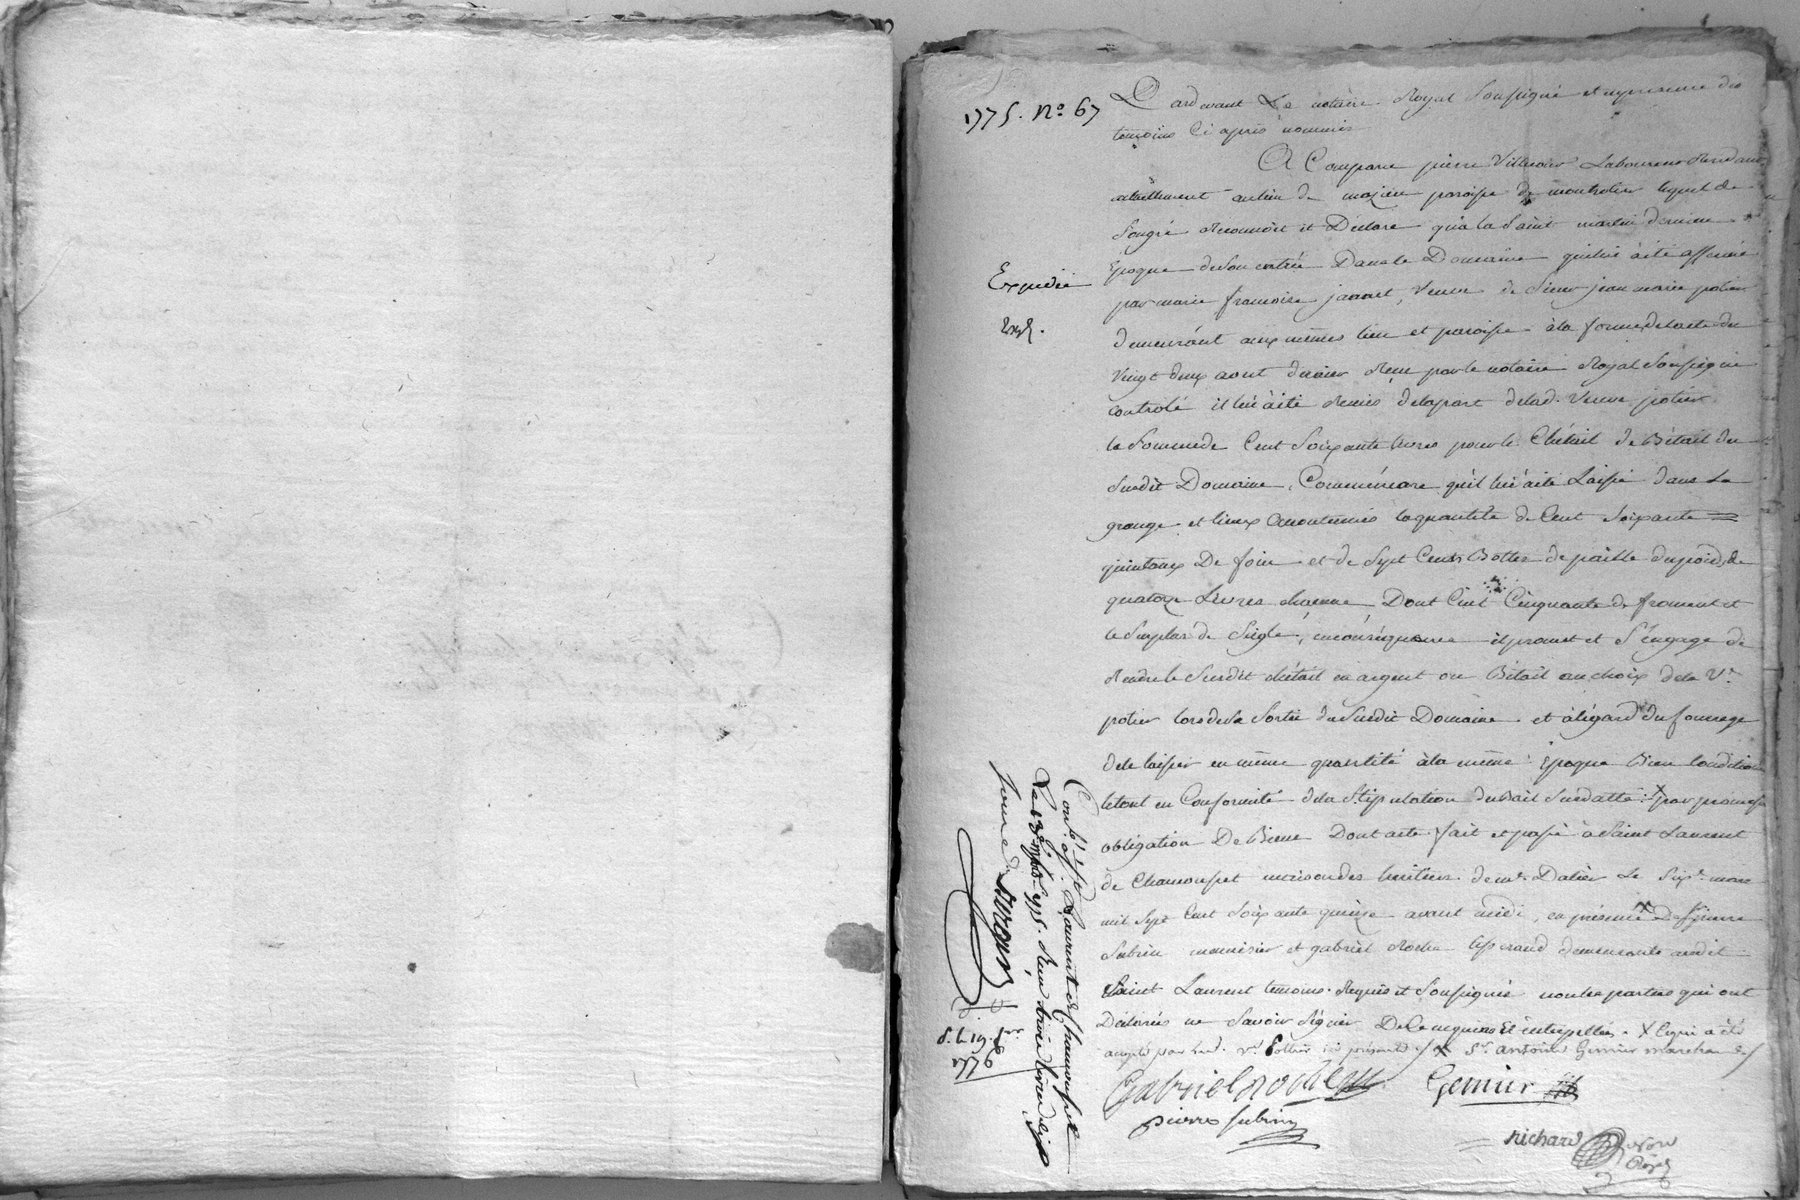 1775. N.° 67
Pardevant Le notaire Royal Soussigné et en presence des
temoins Ci après nommés
A Comparu pierre Laboureur Residant
actuellement au lieu de mazieu paroisse de montrotier lequel de
Songré Reconnoit et Declare qu'à la Saint martin derniere
Epoque deson entrée Dans le Domaine qui lui àété affermé
par marie francoise jannet, Veuve de Sieur jean marie potier
demeurant aux mêmes lieu et paroisse à la forme delacte du
Vingt deux aout dernier Reçu par le notaire Royal Soussigné
controlé il lui àété Remis delapart delad. Veuve potier
la Sommede Cent Soixante livres pour le Chétail de Bétail du
Susdit Domaine, Comme encore qu'il lui àété Laissé dans La
grange et lieux accoutumés la quantité de Cent Soixante
quintaux De foin et de Sept Cents Bottes de paille dupoids de
quatorze Livres chacune Dont Cent Cinquante de froment et
le Surplus de Seigle, en conséquence il promet et S'engage de
Rendre le Susdit chétail en argent ou Bétail au choix dela V.e
potier lors desa Sortie du Susdit Domaine et àlégard du fourrage
dele laisser en même quantité àla même Epoque Bien Conditionné
letout en Conformité dela Stipulation duBail Susdatté X par promesse
obligation De Biens Dont acte fait et passé à Saint Laurent
de Chamousset maison des heritiers de m.e Dalier Le Sept mars
mil Sept Cent Soixante quinze avant midi, en présence X De S.r pierre
Subrin menuisier et gabriel Roche demeurants audit
Saint Laurent temoins Requis et Soussignés non les parties qui ont
Déclarés ne Savoir Signer De Ce enquises Et interpellées. X Ce qui a été
accepté par lad. v.e Pottier ici présente / X S.r antoine Gemier marchand /
Gabriel roche Gemier fils
pierre subrin
richard Nore Royal
Expediée
Con.lé à S.t Laurent de Chamousset
Le 13 mars 1775. Reçu treize
S. le 19. f.er
1776